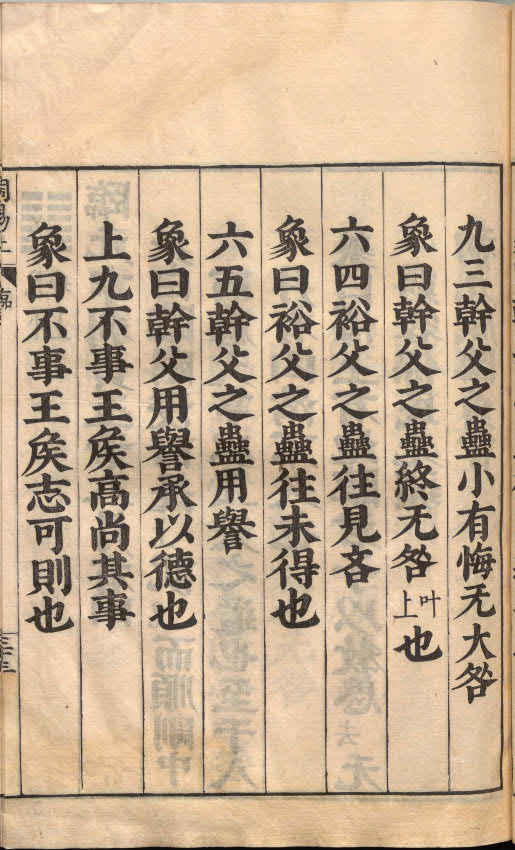 九三幹父之蠱小有悔无大咎
象曰幹父之蠱終无咎叶上也
六四裕父之蠱往見吝
象曰裕父之蠱往未得也
六五幹父之蠱用譽
象曰幹父用譽承以德也
上九不事王矦高尚其事
象曰不事王矦志可則也
周易上 臨